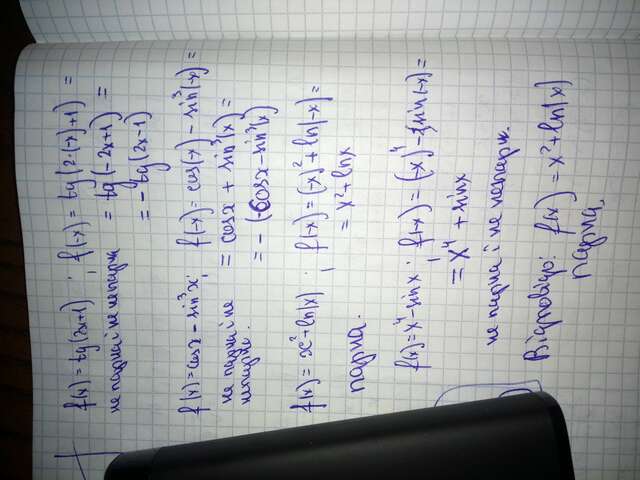 f(x) = tg(2x+1) ; f(-x) = tg(2·(-x)+1) =
= tg(-2x+1) =
= -tg(2x-1)
не парна і не непарн
f(x) = cosx - sin³x; f(-x) = cos(-x) - sin³(-x) =
не парна і не = cosx + sin³(x) =
непарн. = -(-cosx - sin³(x)
f(x) = x² + ln|x| ; f(-x) = (-x)² + ln|-x| =
= x² + lnx
парна.
f(x) = x⁴ - sinx ; f(-x) = (-x)⁴ - sin(-x) =
= x⁴ + sinx
не парна і не непарн.
Відповідь: f(x) = x² + ln|x|
парна,